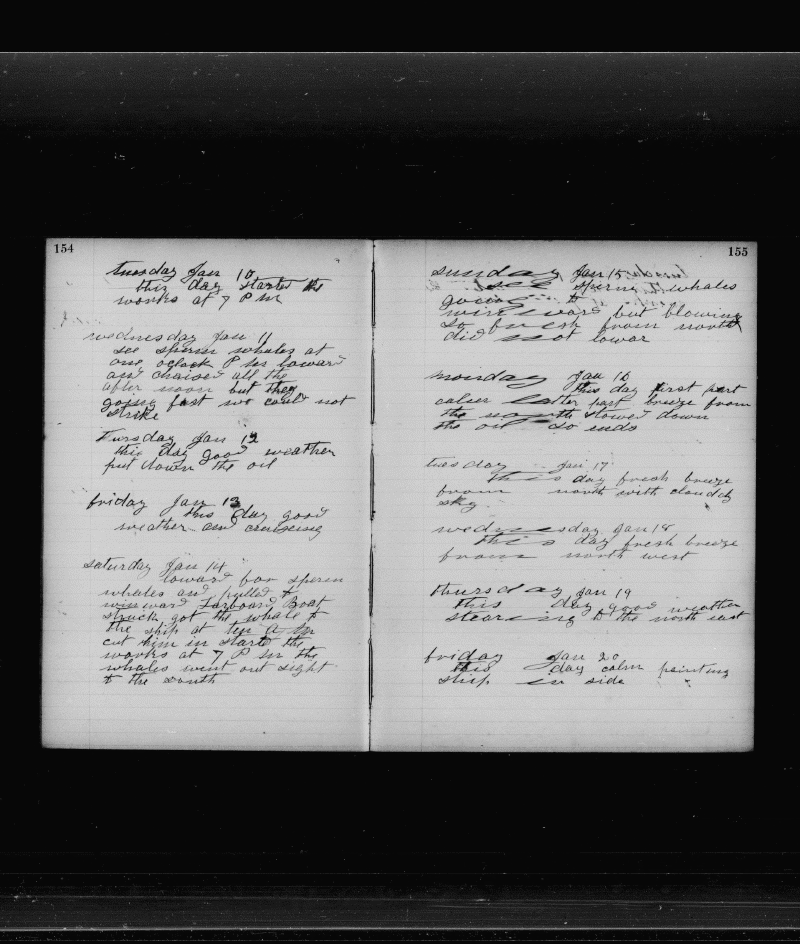 154
tuesday Jan 10
this day started the
works at 7 P M
wednesday Jan 11
see sperm whales at
one oclock P M loward
and chaised all the
after noon but they
going fast we could not
strike
Tursday Jan 12
this day good weather
put down the oil
friday Jan 13
this day good
weather and cruising
saturday Jan 14
loward for sperm
whales and pulled to
winward Larboard Boat
struck got the whale to
the ship at ten A M
cut him in started the
works at 7 P M the
whales went out sight
to the south
155
sunday Jan 15
see sperm whales
going to
winward but blowing
so fresh from north
did not lowar
monday Jan 16
this day first part
calm latter part breeze from
the north stowed down
the oil so ends
tuesday Jan 17
this day fresh breeze
from north with cloudy
sky
wednesday Jan 18
this day fresh breeze
from north west
thursday Jan 19
this day good weather
stearing to the north east
friday Jan 20
this day calm painting
ship in side